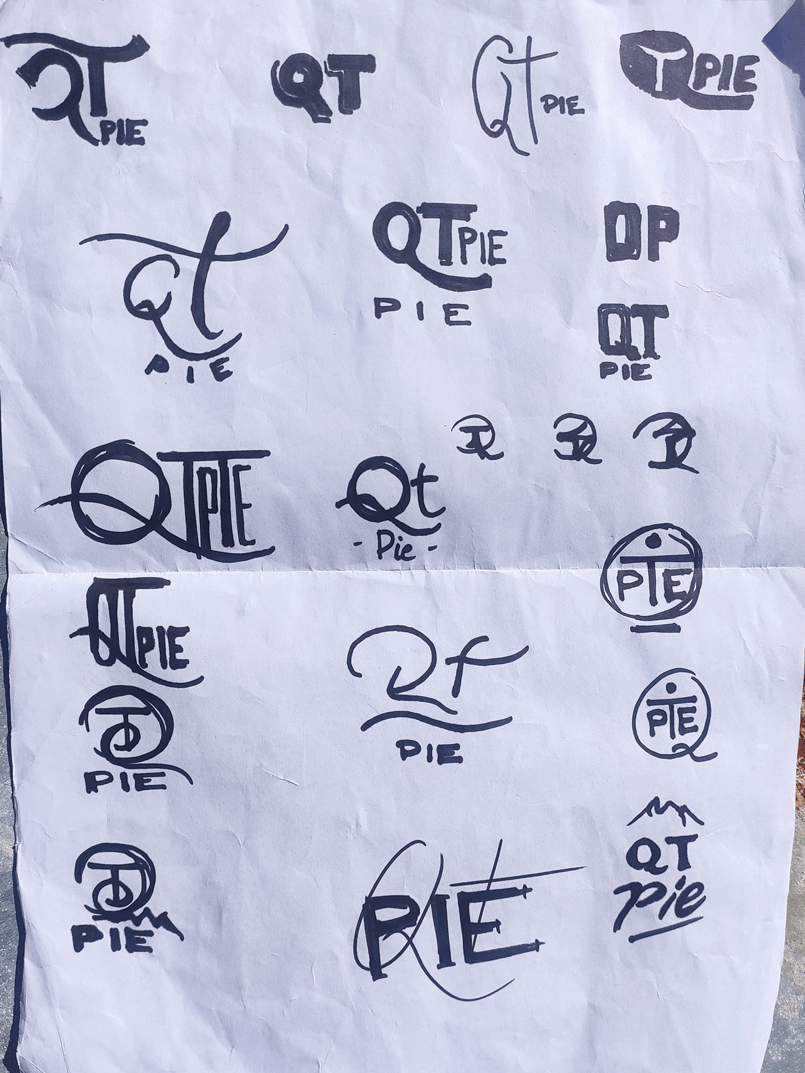 QT
PIE
QT
Qt
PIE
QT PIE
Qt
PIE
QTPIE
PIE
QP
QT
PIE
QTPIE
Qt
- Pie -
PIE
QTPIE
QT
PIE
Qt
PIE
PIE
QT
PIE
Qt
PIE
QT
Pie